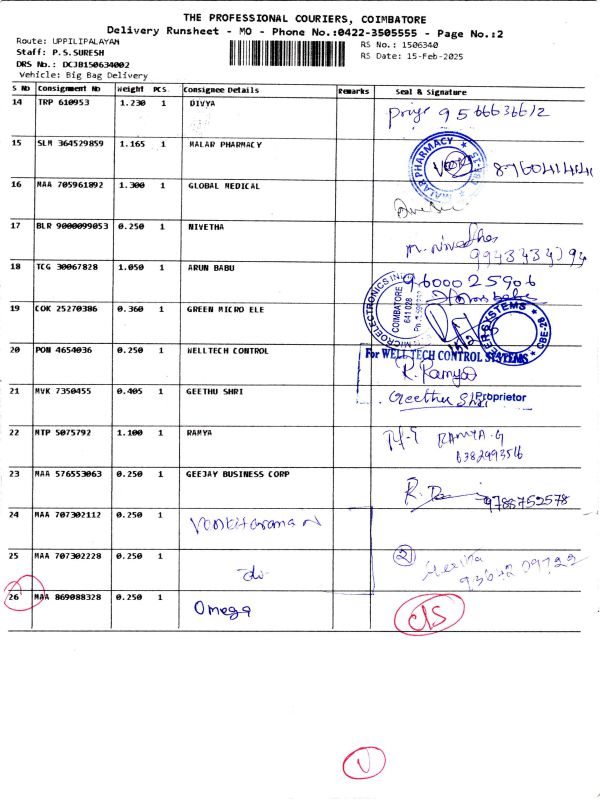 THE PROFESSIONAL COURIERS, COIMBATORE
Delivery Runsheet - MO - Phone No.:0422-3505555 - Page No.:2
Route: UPPILIPALAYAM RS No.: 1506340
Staff: P.S.SURESH RS Date: 15-Feb-2025
DRS No.: DCJB150634002
Vehicle: Big Bag Delivery
S No Consignment No Weight PCS. Consignee Details Remarks Seal & Signature
14 TRP 610953 1.230 1 DIVYA
Priya 9566636612
15 SLM 364529859 1.165 1 MALAR PHARMACY
MALAR PHARMACY
16 MAA 705961892 1.300 1 GLOBAL MEDICAL
17 BLR 9000099053 0.250 1 NIVETHA
M. Nivetha
18 TCG 30067828 1.050 1 ARUN BABU
9600025906
19 COK 25270386 0.360 1 GREEN MICRO ELE
COIMBATORE
641 028
20 PON 4654036 0.250 1 WELLTECH CONTROL
For WELL TECH CONTROL SYSTEMS
R. Ramya
21 MVK 7350455 0.405 1 GEETHU SHRI
Geethu Shri
Proprietor
22 MTP 5075792 1.100 1 RAMYA
RAMYA.G
6382993516
23 MAA 576553063 0.250 1 GEEJAY BUSINESS CORP
9788752578
24 MAA 707302112 0.250 1 Venkitaraman
25 MAA 707302228 0.250 1 do
2
26 MAA 869088328 0.250 1 Omega